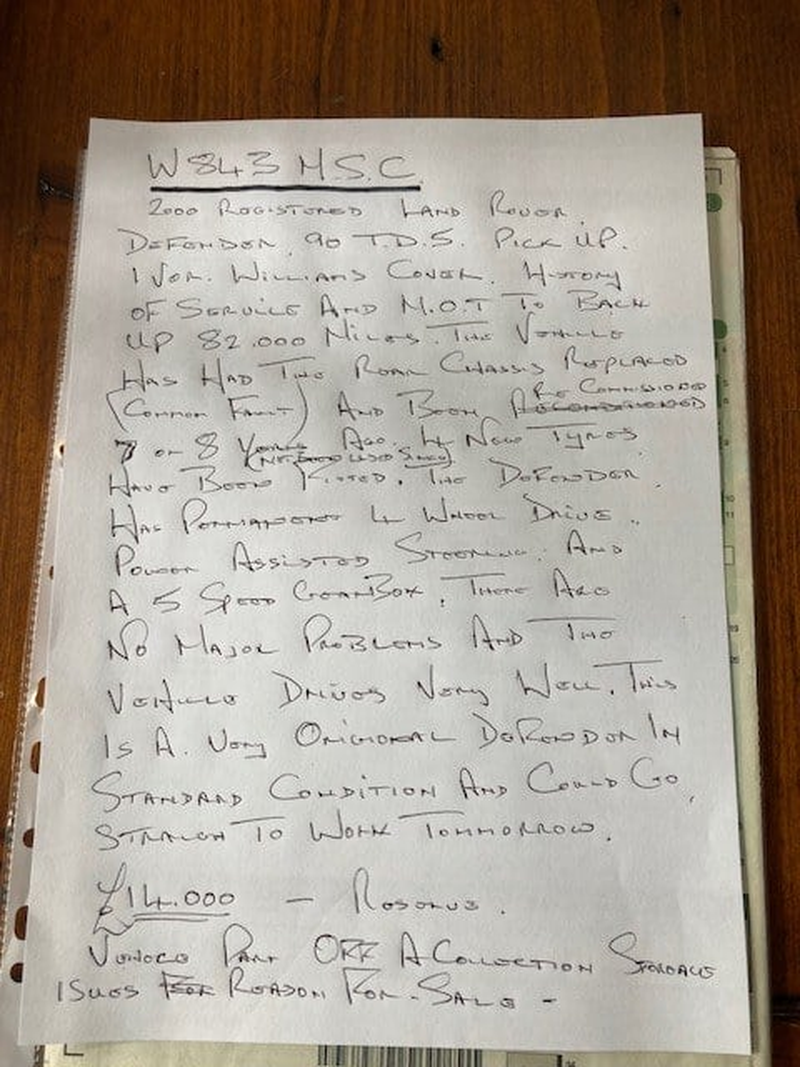 W843 M.S.C.
2000 REGISTERED LAND ROVER.
DEFENDER 90 T.D.5. PICK UP.
WILLIAMS COVER. HISTORY
OF SERVICE AND M.O.T TO BACK
UP 82.000 MILES. THE VEHICLE
HAS HAD THE REAR CHASSIS REPLACED
(COMMON FAULT) AND BEEN RE COMMISSIONED
7 OR 8 YEARS AGO. 4 NEW TYRES
HAVE BEEN FITTED. THE DEFENDER
HAS PERMANENT 4 WHEEL DRIVE.
POWER ASSISTED STEERING. AND
A 5 SPEED GEARBOX. THERE ARE
NO MAJOR PROBLEMS AND THE
VEHICLE DRIVES VERY WELL. THIS
IS A. VERY ORIGIONAL DEFENDER IN
STANDARD CONDITION AND COULD GO,
STRAIGH TO WORK TOMMORROW.
£14.000 – RESERVE.
PART OFF A COLLECTION STORAGE
ISUES REASON FOR SALE –